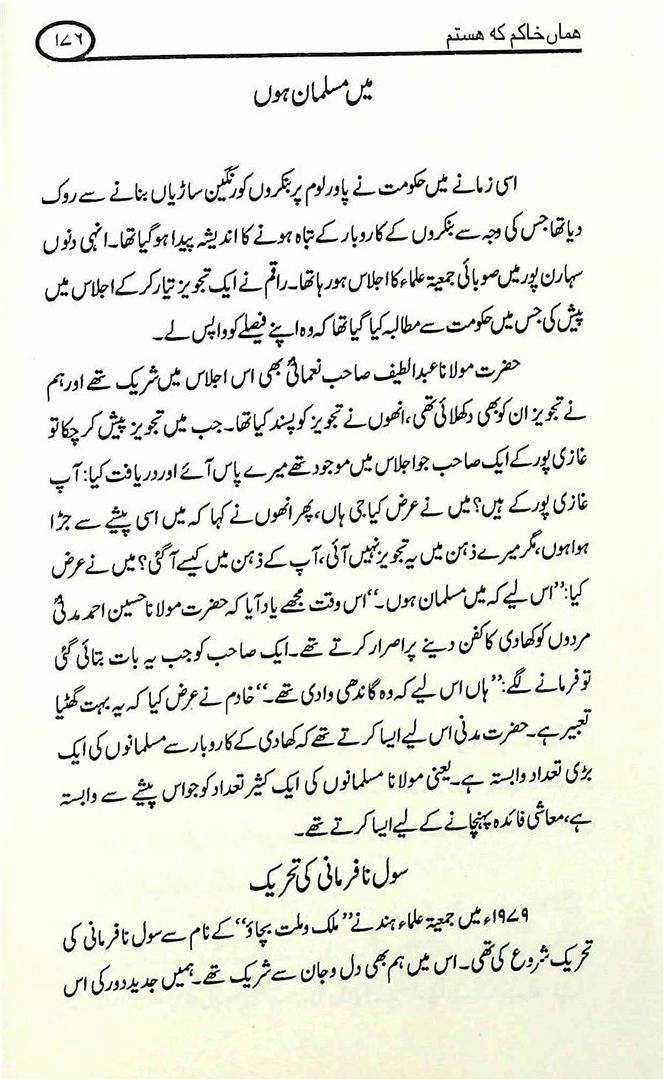 ھماں خاکم که هستم
۱۷۶
میں مسلمان ہوں
اسی زمانے میں حکومت نے پاور لوم پر بنکروں کو رنگین ساڑیاں بنانے سے روک
دیا تھا جس کی وجہ سے بنکروں کے کاروبار کے تباہ ہونے کا اندیشہ پیدا ہو گیا تھا۔ انہی دنوں
سہارن پور میں صوبائی جمعیۃ علماء کا اجلاس ہو رہا تھا۔ راقم نے ایک تجویز تیار کر کے اجلاس میں
پیش کی جس میں حکومت سے مطالبہ کیا گیا تھا کہ وہ اپنے فیصلے کو واپس لے۔
حضرت مولانا عبد الطیف صاحب نعمانیؒ بھی اس اجلاس میں شریک تھے اور ہم
نے تجویز ان کو بھی دکھلائی تھی، انھوں نے تجویز کو پسند کیا تھا۔ جب میں تجویز پیش کر چکا تو
غازی پور کے ایک صاحب جو اجلاس میں موجود تھے میرے پاس آئے اور دریافت کیا: آپ
غازی پور کے ہیں؟ میں نے عرض کیا جی ہاں، پھر انھوں نے کہا کہ میں اسی پیشے سے جڑا
ہوا ہوں، مگر میرے ذہن میں یہ تجویز نہیں آئی، آپ کے ذہن میں کیسے آ گئی؟ میں نے عرض
کیا: ”اس لیے کہ میں مسلمان ہوں۔“ اس وقت مجھے یاد آیا کہ حضرت مولانا حسین احمد مدنیؒ
مردوں کو کھادی کا کفن دینے پر اصرار کرتے تھے۔ ایک صاحب کو جب یہ بات بتائی گئی
تو فرمانے لگے: ”ہاں اس لیے کہ وہ گاندھی وادی تھے۔“ خادم نے عرض کیا کہ یہ بہت گھٹیا
تعبیر ہے۔ حضرت مدنی اس لیے ایسا کرتے تھے کہ کھادی کے کاروبار سے مسلمانوں کی ایک
بڑی تعداد وابستہ ہے۔ یعنی مولانا مسلمانوں کی ایک کثیر تعداد کو جو اس پیشے سے وابستہ
ہے، معاشی فائدہ پہنچانے کے لیے ایسا کرتے تھے۔
سول نافرمانی کی تحریک
۱۹۷۹ء میں جمعیۃ علماء ہند نے ”ملک و ملت بچاؤ“ کے نام سے سول نافرمانی کی
تحریک شروع کی تھی۔ اس میں ہم بھی دل و جان سے شریک تھے۔ ہمیں جدید دور کی اس